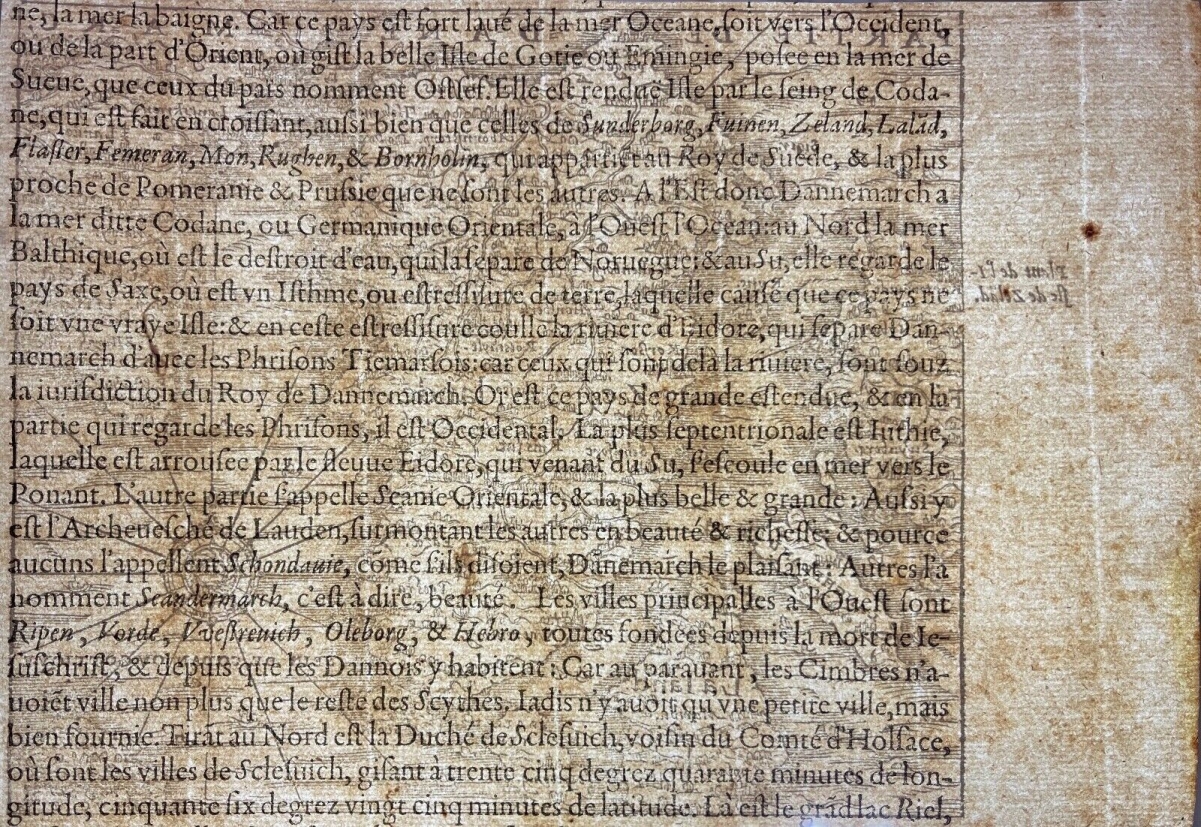 ne, la mer la baigne. Car ce pays est fort laué de la mer Oceane, soit vers l'Occident,
ou de la part d'Orient, où gist la belle Isle de Gotie ou Emingie, posee en la mer de
Sueue, que ceux du païs nomment Ostsef. Elle est rendue Isle par le seing de Coda-
ne, qui est fait en croissant, aussi bien que celles de Sunderborg, Fuinen, Zeland, Lalãd,
Flaster, Femeran, Mon, Rughen, & Bornholin, qui appartiẽt au Roy de Suede, & la plus
proche de Pomeranie & Prussie que ne sont les autres. A l'Est donc Dannemarch a
la mer ditte Codane, ou Germanique Orientale, à l'Ouest l'Ocean: au Nord la mer
Balthique, où est le destroit d'eau, qui la separe de Noruegue: & au Su, elle regarde le
pays de Saxe, où est vn Isthme, ou estressisure de terre, laquelle cause que ce pays ne
soit vne vraye Isle: & en ceste estressisure coulle la riuiere d'Eidore, qui separe Dan-
nemarch d'auec les Phrisons Tiemarsois: car ceux qui sont delà la riuiere, sont souz
la iurisdiction du Roy de Dannemarch. Or est ce pays de grande estendue, & en la
partie qui regarde les Phrisons, il est Occidental. La plus septentrionale est Iuthie,
laquelle est arrousee par le fleuue Eidore, qui venant du Su, s'escoule en mer vers le
Ponant. L'autre partie s'appelle Scanie Orientale, & la plus belle & grande: Aussi y
est l'Archeuesché de Lauden, surmontant les autres en beauté & richesse; & pource
aucuns l'appellent Schondauie, cõme s'ils disoient, Dãnemarch le plaisant: Autres l'a
nomment Scandermarch, c'est à dire, beauté. Les villes principalles à l'Ouest sont
Ripen, Vorde, Vvestreuich, Oleborg, & Hebro, toutes fondees depuis la mort de Ie-
suschrist, & depuis que les Dannois y habitent: Car au parauant, les Cimbres n'a-
uoiẽt ville non plus que le reste des Scythes. Iadis n'y auoit qu'vne petite ville, mais
bien fournie. Tirãt au Nord est la Duché de Sclesuich, voisin du Comté d'Holsace,
où sont les villes de Sclesuich, gisant à trente cinq degrez quarante minutes de lon-
gitude, cinquante six degrez vingt cinq minutes de latitude. Là est le grãd lac Riel,